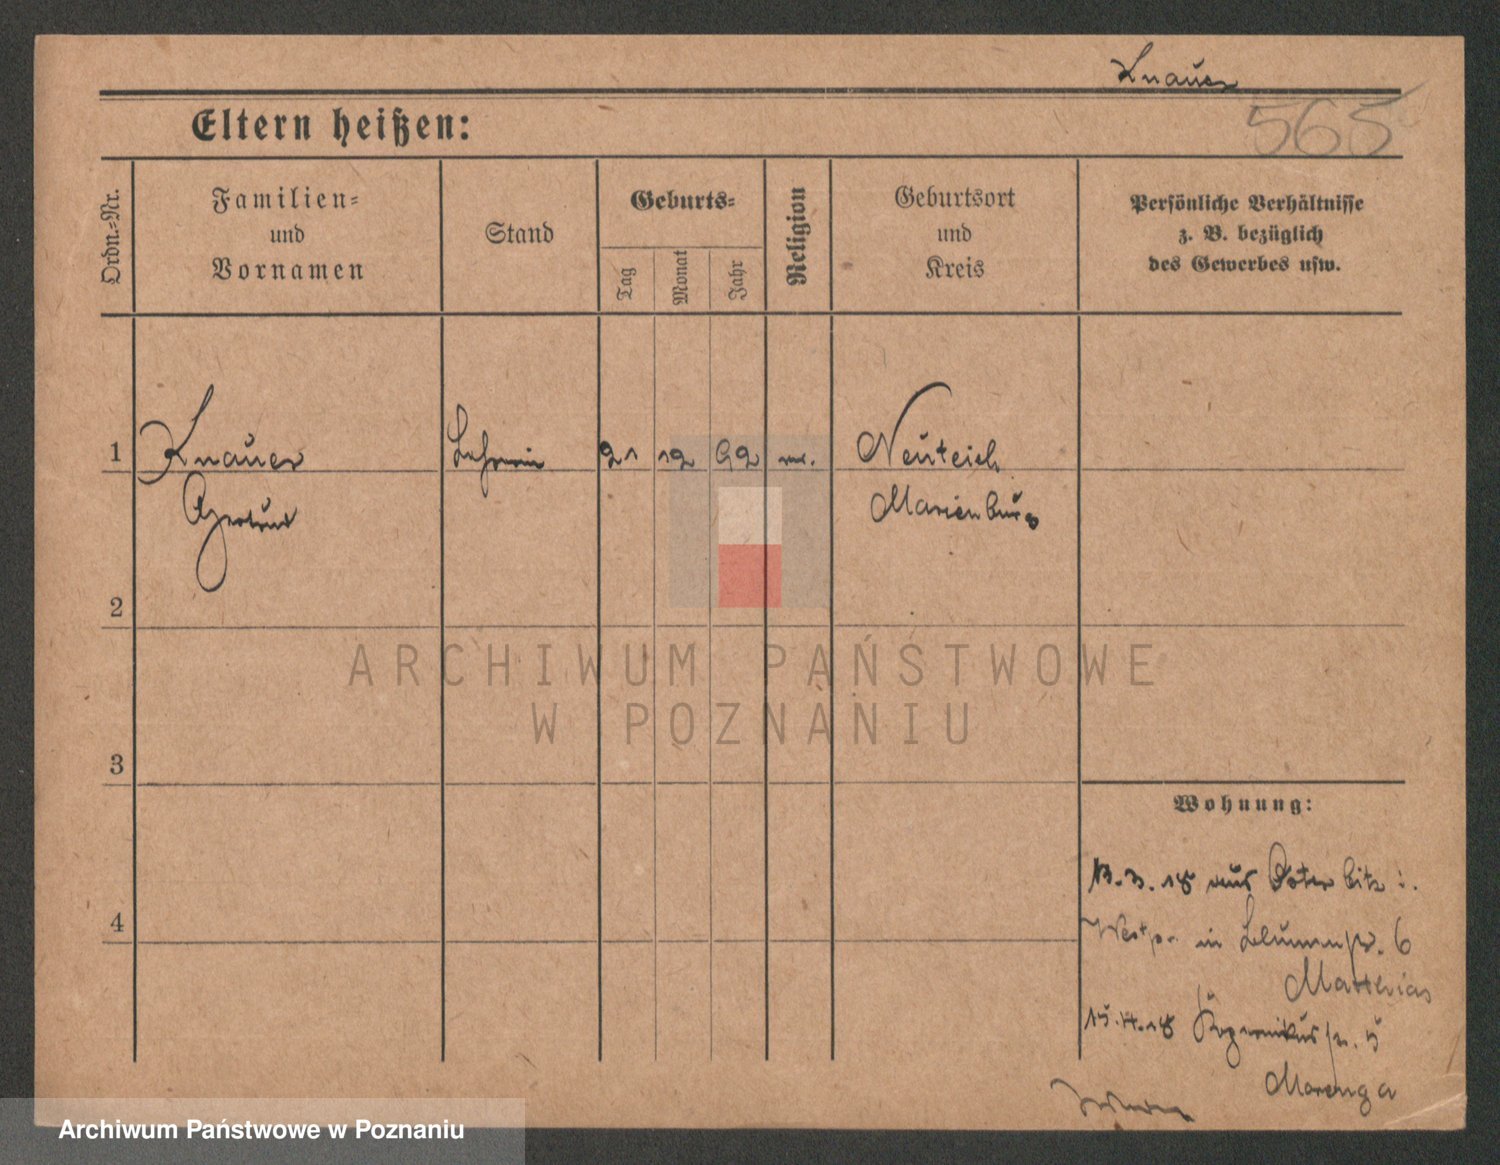 Knauer
565
Eltern heißen:
Ordn.-Nr.
Familien-
und
Vornamen
Stand
Geburts-
Tag
Monat
Jahr
Religion
Geburtsort
und
Kreis
Persönliche Verhältnisse
z. B. bezüglich
des Gewerbes usw.
1 Knauer Lehrerin 21 12 92 Neuteich
Gertrud Marienburg
2
ARCHIWUM PAŃSTWOWE
W POZNANIU
3
Wohnung:
13.3.18 aus
4
Westpr. in 6
Matthias
15.4.18 Kopernikusstr. 5
Marenga
Archiwum Państwowe w Poznaniu